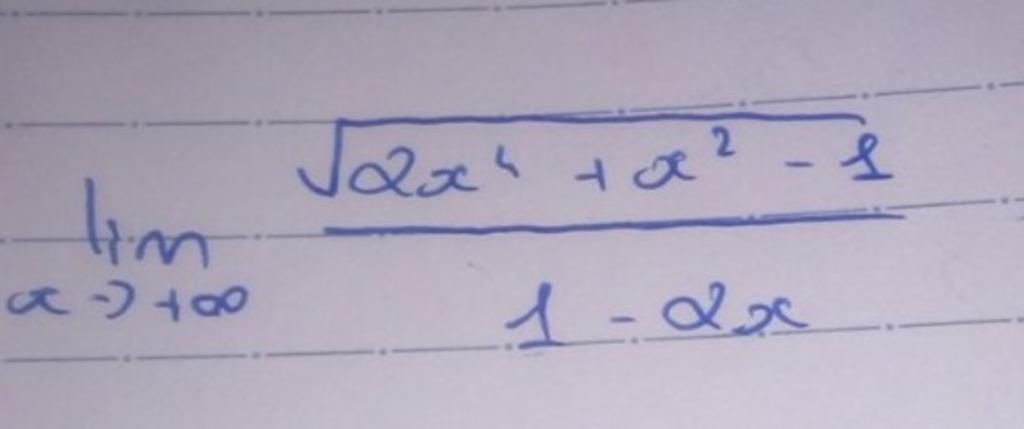 lim x→+∞ √(2x⁴ + x² - 1) / (1 - 2x)